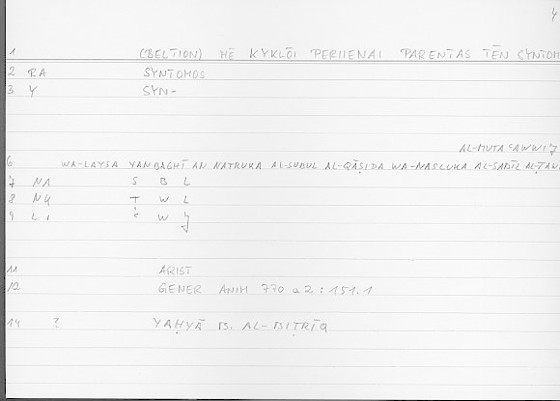 4
1 (BELTION) MĒ KYKLŌI PERIIENAI PARENTAS TĒN SYNTOM
2 RA SYNTOMOS
3 Y SYN-
AL-MUTAʿAWWIǦ
6 WA-LAYSA YANBAGHĪ AN NATRUKA AL-SUBUL AL-QĀṢIDA WA-NASLUKA AL-SABĪL AL-ṬAW
7 NA S B L
8 NU Ṭ W L
9 LI ʿ W Ǧ
11 ARIST
12 GENER ANIM 770 a 2 : 151.1
14 ? YAḤYĀ B. AL-BIṬRĪQ